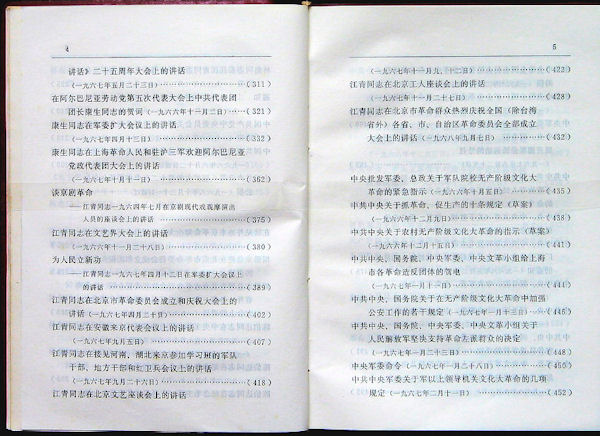 4
讲话》二十五周年大会上的讲话
(一九六七年五月二十三日)……………………(311)
在阿尔巴尼亚劳动党第五次代表大会上中共代表团
团长康生同志的贺词(一九六六年十一月二日)……(321)
康生同志在军委扩大会议上的讲话
(一九六七年四月十三日)……………………(332)
康生同志在上海革命人民和驻沪三军欢迎阿尔巴尼亚
党政代表团大会上的讲话
(一九六七年十月十一日)……………………(362)
谈京剧革命
——江青同志一九六四年七月在京剧现代戏观摩演出
人员的座谈会上的讲话……………………(375)
江青同志在文艺界大会上的讲话
(一九六六年十一月二十八日)……………………(380)
为人民立新功
——江青同志一九六七年四月十二日在军委扩大会议上
的讲话……………………(389)
江青同志在北京市革命委员会成立和庆祝大会上的
讲话(一九六七年四月二十日)……………………(402)
江青同志在安徽来京代表会议上的讲话
(一九六七年九月五日)……………………(407)
江青同志在接见河南、湖北来京参加学习班的军队
干部、地方干部和红卫兵会议上的讲话
(一九六七年九月二十六日)……………………(418)
江青同志在北京文艺座谈会上的讲话
5
(一九六七年十一月九、十二日)……………………(422)
江青同志在北京工人座谈会上的讲话
(一九六七年十一月二十七日)……………………(428)
江青同志在北京市革命群众热烈庆祝全国(除台湾
省外)各省、市、自治区革命委员会全部成立
大会上的讲话(一九六八年九月七日)……………………(432)
中央批发军委、总政关于军队院校无产阶级文化大
革命的紧急指示(一九六六年十月五日)……………………(435)
中共中央关于抓革命、促生产的十条规定(草案)
(一九六六年十二月九日)……………………(438)
中共中央关于农村无产阶级文化大革命的指示(草案)
(一九六六年十二月十五日)……………………(441)
中共中央、国务院、中央军委、中央文革小组给上海
市各革命造反团体的贺电
(一九六七年一月十一日)……………………(444)
中共中央、国务院关于在无产阶级文化大革命中加强
公安工作的若干规定(一九六七年一月十三日)……(445)
中共中央、国务院、中央军委、中央文革小组关于
人民解放军坚决支持革命左派群众的决定
(一九六七年一月二十三日)……………………(448)
中央军委命令(一九六七年一月二十八日)……………………(450)
中共中央军委关于军以上领导机关文化大革命的几项
规定(一九六七年二月十一日)……………………(452)